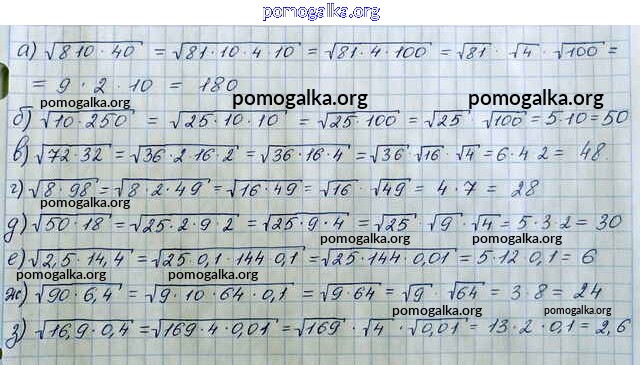 pomogalka.org
а) √810·40 = √81·10·4·10 = √81·4·100 = √81 · √4 · √100 =
= 9 · 2 · 10 = 180
pomogalka.org pomogalka.org pomogalka.org
б) √10·250 = √25·10·10 = √25·100 = √25 · √100 = 5·10=50
в) √72·32 = √36·2·16·2 = √36·16·4 = √36 · √16 · √4 = 6·4 2 = 48.
pomogalka.org pomogalka.org
г) √8·98 = √8·2·49 = √16·49 = √16 · √49 = 4·7 = 28
д) √50·18 = √25·2·9·2 = √25·9·4 = √25 · √9 · √4 = 5·3·2 = 30
pomogalka.org pomogalka.org
е) √2,5·14,4 = √25·0,1·144·0,1 = √25·144·0,01 = 5·12·0,1 = 6
pomogalka.org pomogalka.org
ж) √90·6,4 = √9·10·64·0,1 = √9·64 = √9 · √64 = 3·8 = 24
pomogalka.org pomogalka.org
з) √16,9·0,4 = √169·4·0,01 = √169 · √4 · √0,01 = 13·2·0,1 = 2,6
pomogalka.org pomogalka.org